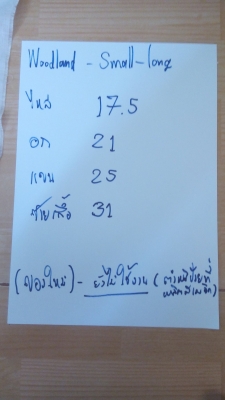 Woodland - Small-long
ไหล่ 17.5
อก 21
แขน 25
ชายเสื้อ 31
(ของใหม่) - ยังไม่ใช้งาน (ตำหนิป้ายที่